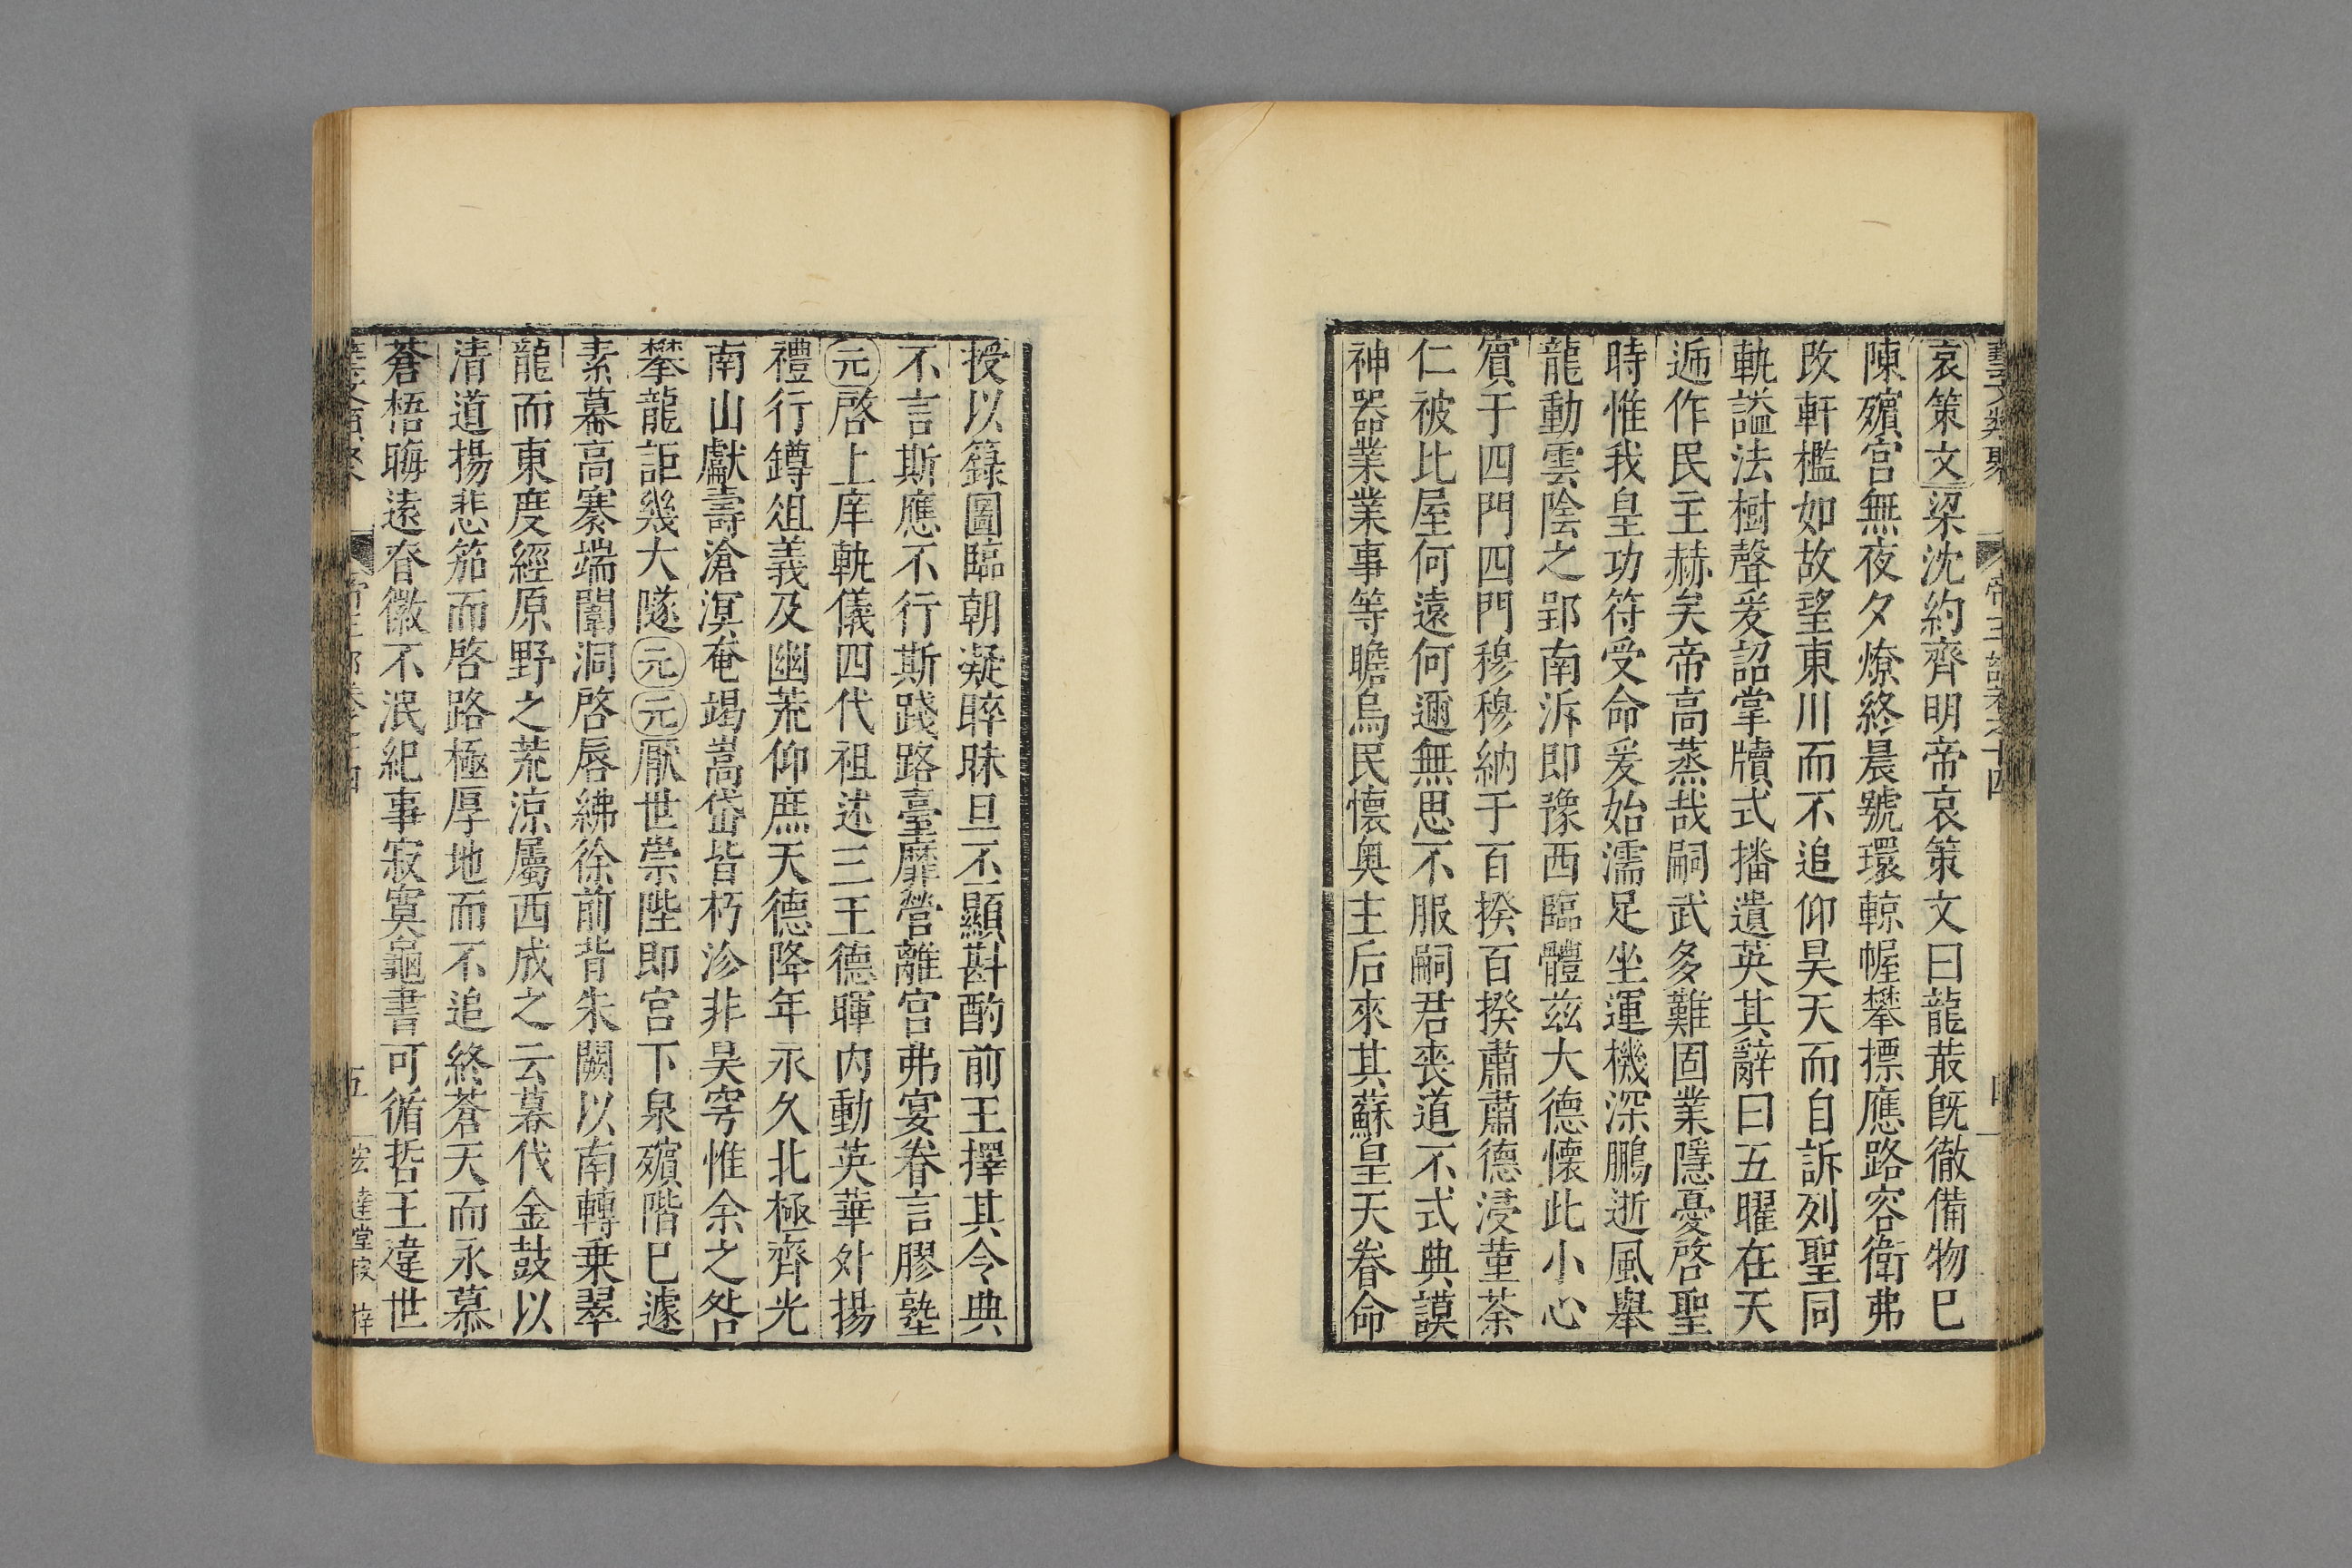 藝文類聚 帝王部卷之十四 四
哀策文梁沈約齊明帝哀策文曰龍菆旣徹備物巳
陳殯宫無夜夕燎終晨號環輬幄攀摽應路容衛弗
改軒檻如故望東川而不追仰昊天而自訴列聖同
軌謚法樹聲爰詔掌牘式播遺英其辭曰五曜在天
遞作民主赫矣帝高蒸哉嗣武多難固業隱憂啓聖
時惟我皇功符受命爰始濡足坐運機深鵬逝風舉
龍動雲陰之郢南泝即豫西臨體兹大德懷此小心
賓于四門四門穆穆納于百揆百揆肅肅德浸董荼
仁被比屋何遠何邇無思不服嗣君喪道不式典謨
神器業業事等瞻烏民懷奥主后來其蘇皇天眷命
授以籙圖臨朝凝睟昧旦丕顯斟酌前王擇其令典
不言斯應不行斯踐路臺靡營離宫弗宴眷言膠塾
元啓上庠軌儀四代祖述三王德暉内動英華外揚
禮行鐏俎義及幽荒仰庶天德降年永久北極齊光
南山獻壽滄溟奄竭嵩岱皆朽沴非昊穹惟余之咎
攀龍詎幾大隧元元厭世崇陛即宫下泉殯階巳遽
素幕高褰端闈洞啓唇紼徐前背朱闕以南轉乗翠
龍而東度經原野之荒凉屬西成之云暮伐金鼓以
清道揚悲笳而啓路極厚地而不追終蒼天而永慕
蒼梧晦遠春徽不泯紀事寂寞龜書可循哲王違世
五